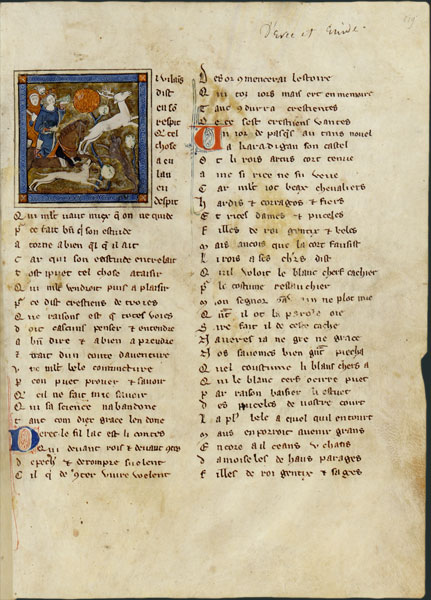 D'erec et Enide.
i vilais
dist
en sõ
respit
Q̃ tel
chose
a en
lan
en
despit
Q ui mlt̃ vaut
P ce fait bñ
a torne abien
C ar qui son estuide entrelait
t ost ipuet tel chose ataisir
Q ui mlt̃ vendroit puis a plaisir
P ce dist crestiens de troies
Q ue raisons est q̃ totes voies
d oit cascuns penser & entendre
a bñ dire & abien aprendre
& trait dun conte daventure
v ne mlt̃ bele coniuncture
P con puet prover & savoir
Q cil ne fait mie savoir
Q ui sa science nabandone
t ant com diex grace len done
D erec le fil lac est li contes
Q ui devant rois & devant 9tes
d epech & derompre suelent
C il q̃ de 9ter vivre welent
D es or 9mencerai lestoire
Q ui tos iors mais ert en memoire
T ant 9 durra crestientes
D e ce sest crestiens vantes
U n ior de pasq̃ au tans novel
a karadigan son castel
O t li rois artus cort tenue
a inc si rice ne fu veue
C ar mlt̃ iot beax chevaliers
h ardis & corragos & fiers
E t rices dames & puceles
F illes de roi gentix & beles
m ais ancois que la cort fausist
L i rois a ses chrs dist
Q uil voloit le blanc cherf cachier
P le costume
m on segnor
Q nt̃ il ot la parole oie
S ire fait il de ceste cache
N averes ia ne gre ne grace
N os savomes bien
Q uel coustume li blans chers a
Q ui le blanc cerf ocirre puet
P ar raison baisier li estuet
D es puceles de nostre court
L a pl9 bele a quoi quil entourt
m aus en porroit avenir grans
E ncore a il ceans v chans
d amoiseles de haus parages
F illes de roi gentix & sages